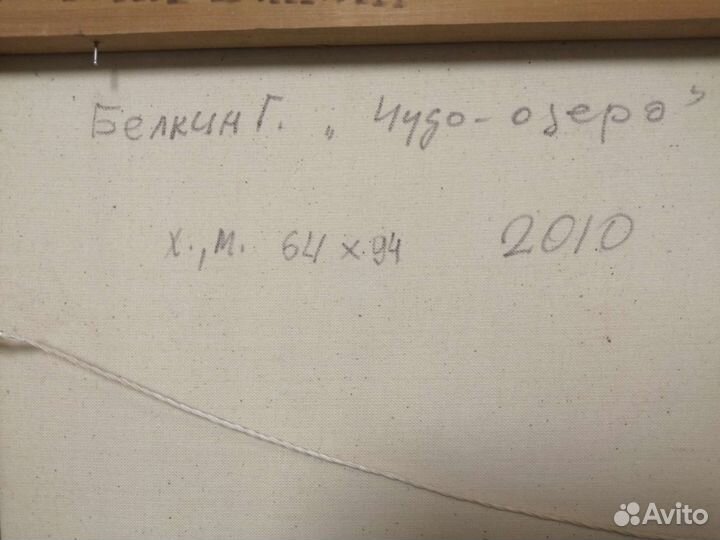 Белкин Г. „Чудо-озеро”
х., м. 64 х 94 2010
Avito